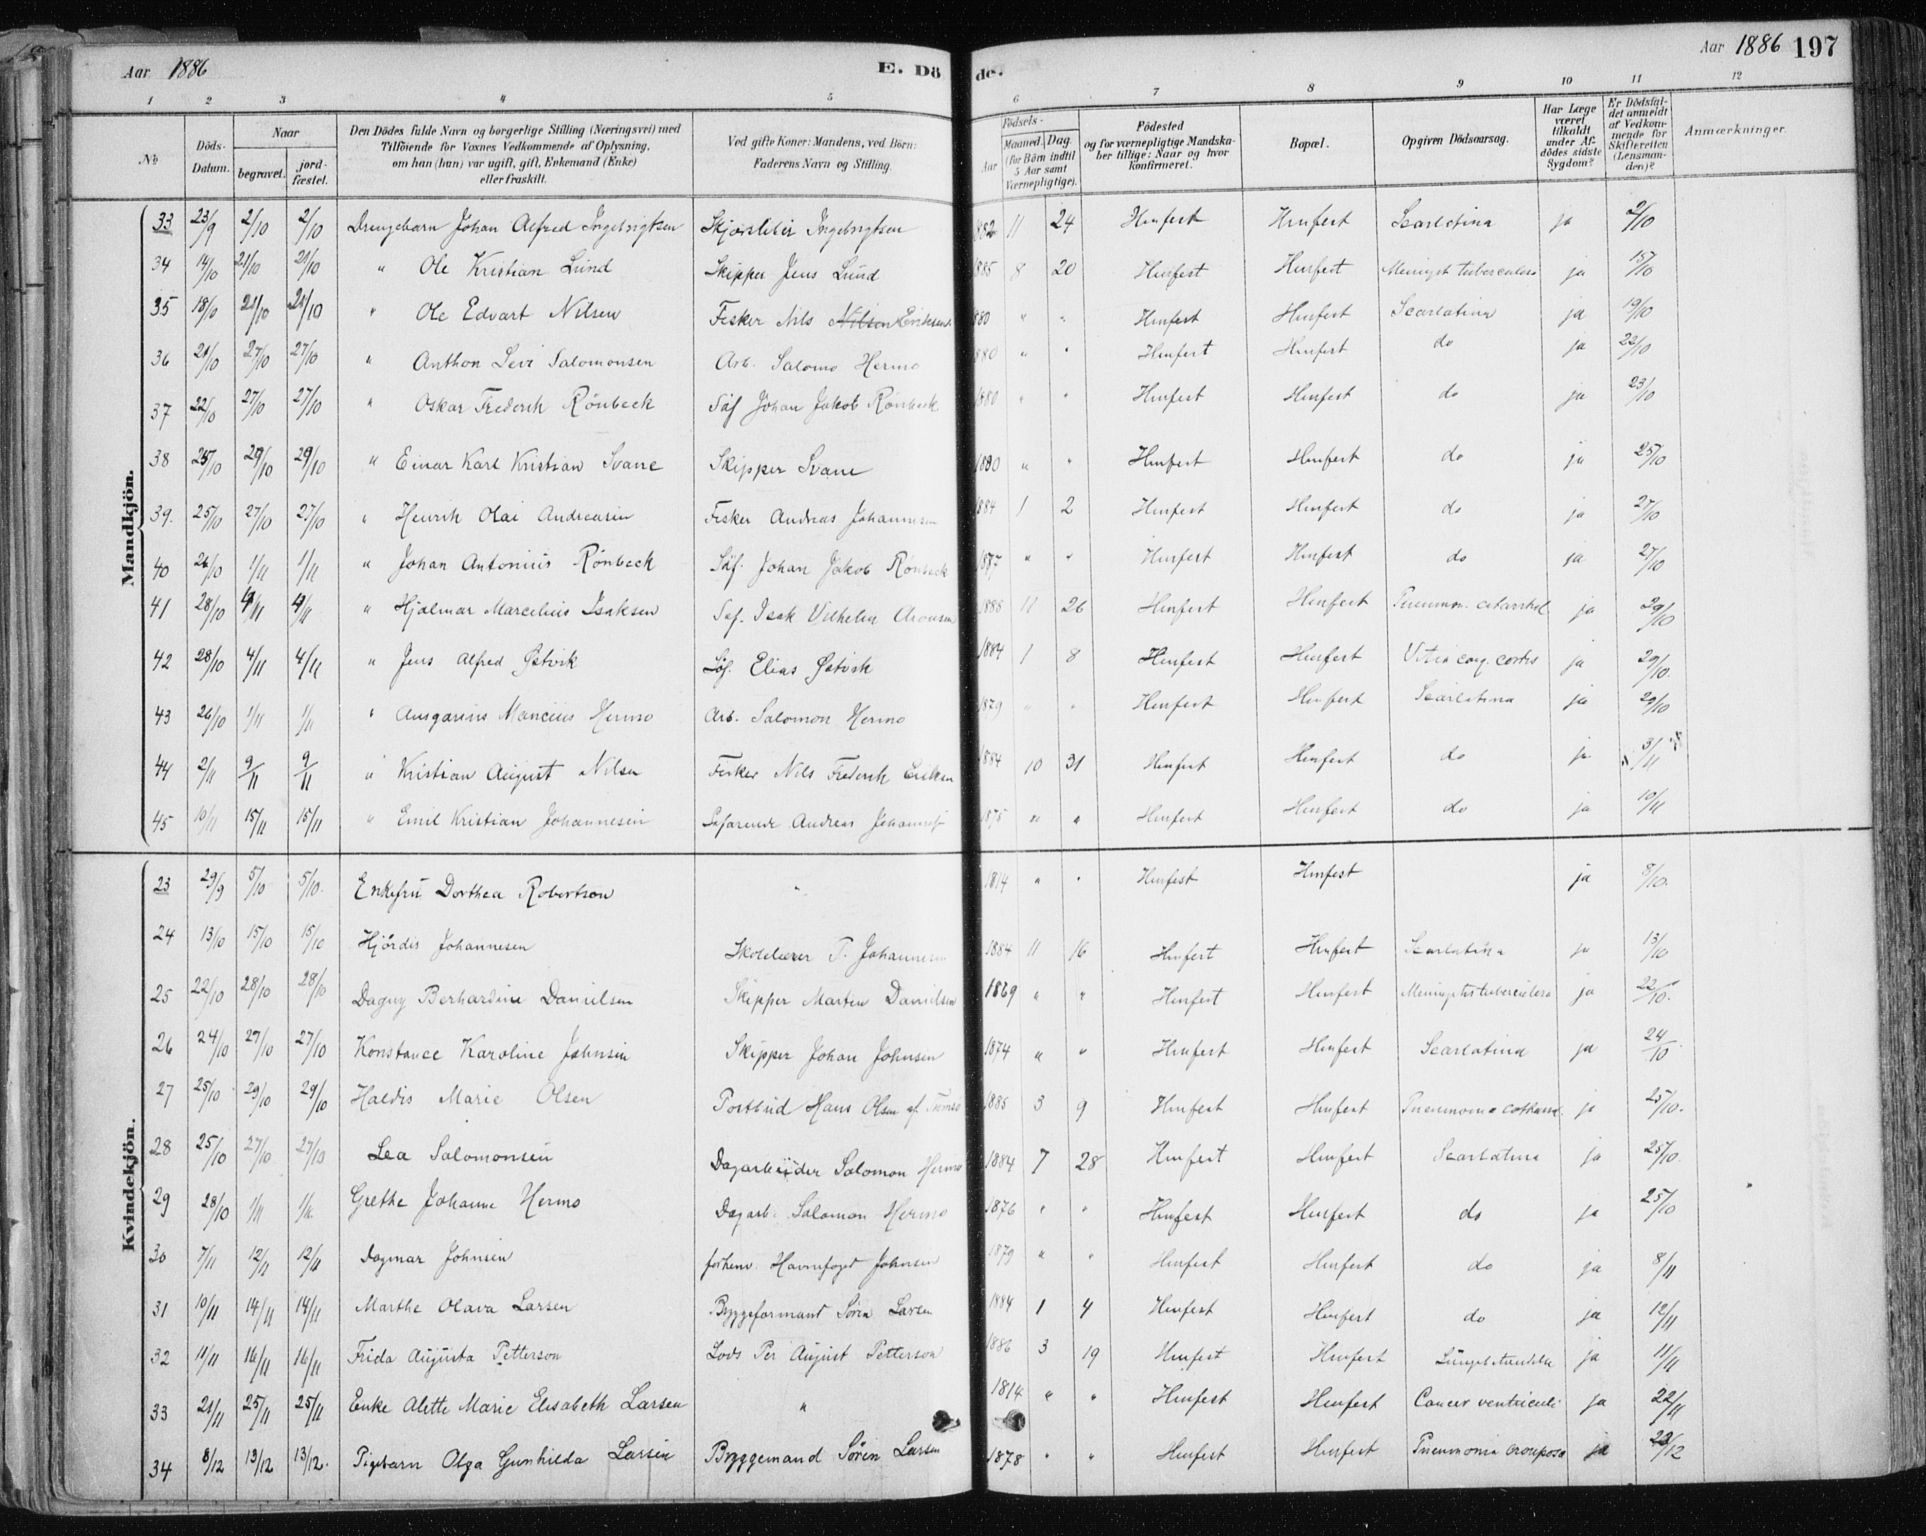 Aar 1886
E. Dö
de.
Aar 1886 197
1 2 3 4 5 6 7 8 9 10 11 12
No
Döds-Datum.
Naar
begravet.
jord-fæstet.
Den Dödes fulde Navn og borgerlige Stilling (Næringsvei) med
Tilföiende for Voxnes Vedkommende af Oplysning,
om han (hun) var ugift, gift, Enkemand (Enke)
eller fraskilt.
Ved gifte Koner: Mandens, ved Börn:
Faderens Navn og Stilling.
Födsels-
Aar
Maaned. Dag.
(for Börn indtil
5 Aar samt
Værnepligtige).
Födested
og for værnepligtige Mandska-
ber tillige: Naar og hvor
konfirmeret.
Bopæl.
Opgiven Dödsaarsag.
Har Læge
været
tilkaldt
under Af-
dödes sidste
Sygdom?
Er Dödsfal-
det anmeldt
af Vedkom-
mende for
Skifteretten
(Lensman-
den)?
Anmærkninger.
Mandkjön.
33 23/9 2/10 2/10 Drengebarn Johan Alfred Ingebrigtsen Ingebrigtsen 1882 11 24 Hmfest Hmfest Scarlatina ja 2/10
34 14/10 21/10 21/10 " Ole Kristian Lund Skipper Jens Lund 1885 8 20 Hmfest Hmfest Meningit tuberculosa ja 15/10
35 18/10 21/10 21/10 " Ole Edvart Nilsen Fisker Nils Nilsen Eriksen 1880 " " Hmfest Hmfest Scarlatina ja 19/10
36 21/10 27/10 27/10 " Anthon Levi Salomonsen Arb. Salomo Hermo 1880 " " Hmfest Hmfest do ja 22/10
37 22/10 27/10 27/10 " Oskar Frederik Rönbeck Söf Johan Jakob Rönbeck 1880 " " Hmfest Hmfest do ja 23/10
38 25/10 29/10 29/10 " Einar Karl Kristian Svane Skipper Svane 1880 " " Hmfest Hmfest do ja 25/10
39. 25/10 27/10 27/10 " Henrik Olai Andreasen Fisker Andreas Johannesen 1884 1 2 Hmfest Hmfest do ja 27/10
40 26/10 1/11 1/11 " Johan Antonius Rönbeck Söf. Johan Jakob Rönbeck 1877 " " Hmfest Hmfest do ja 27/10
41 28/10 4/11 4/11 " Hjalmar Marcelius Isaksen Söf. Isak Vilhelm Aronsen 1885 11 26 Hmfest Hmfest Pneumon. catarrhal ja 29/10
42 28/10 4/11 4/11 " Jens Alfred Østvik Söf. Elias Østvik 1884 1 8 Hmfest Hmfest cordis ja 29/10.
43 26/10 1/11 1/11 " Ansgarius Mancius Hermo Arb. Salomon Hermo 1879 " " Hmfest Hmfest Scarlatina ja 29/10
44 2/11 9/11 9/11 " Kristian August Nilsen Fisker Nils Frederik Eriksen 1884 10 31 Hmfest Hmfest do ja 3/11
45 10/11 15/11 15/11 " Emil Kristian Johannesen Söfarende Andreas Johannesen 1875 " " Hmfest Hmfest do ja 10/11
Kvindekjön.
23 29/9 5/10 5/10. Enkefru Dorthea Robertson " 1814 " " Hmfest Hmfest ja 8/10.
24 13/10 15/10 15/10 Hjördis Johannesen Skolelærer P. Johannesen 1884 11 16 Hmfest Hmfest Scarlatina ja 13/10
25 22/10 28/10 28/10 Dagny Berhardine Danielsen Skipper Marten Danielsen 1869 " " Hmfest Hmfest Meningitis tuberculosa ja 22/10.
26 24/10 27/10 27/10 Konstance Karoline Johnsen Skipper Johan Johnsen 1874 " " Hmfest Hmfest Scarlatina ja 24/10.
27 25/10 29/10 29/10 Haldis Marie Olsen Postbud Hans Olsen af Tromsö 1885 3 9 Hmfest Hmfest Pneumonia catharr. ja 25/10.
28 25/10 27/10 27/10 Lea Salomonsen Dagarbeider Salomon Hermo 1884 7 28 Hmfest Hmfest Scarlatina ja 25/10.
29 28/10 1/11 1/11 Grethe Johanne Hermo Dagarb. Salomon Hermo 1876 " " Hmfest Hmfest do ja 25/10
30 7/11 12/11 12/11 Dagmar Johnsen forhenv. Havnefoget Johnsen 1879 " " Hmfest Hmfest do ja 8/11
31 10/11 14/11 14/11 Marthe Olava Larsen Byggeformand Sören Larsen 1884 1 4 Hmfest Hmfest do ja 12/11
32 11/11 16/11 16/11 Frida Augusta Petterson Lods Per August Petterson 1886 3 19 Hmfest Hmfest ja 11/11
33 21/11 25/11 25/11 Enke Alette Marie Elisabeth Larsen " 1814 " " Hmfest Hmfest Cancer ventriculi ja 22/11
34 8/12 13/12 13/12. Pigebarn Olga Gunhilda Larsen Byggemand Sören Larsen 1878 " " Hmfest Hmfest Pneumonia crouposa ja /12